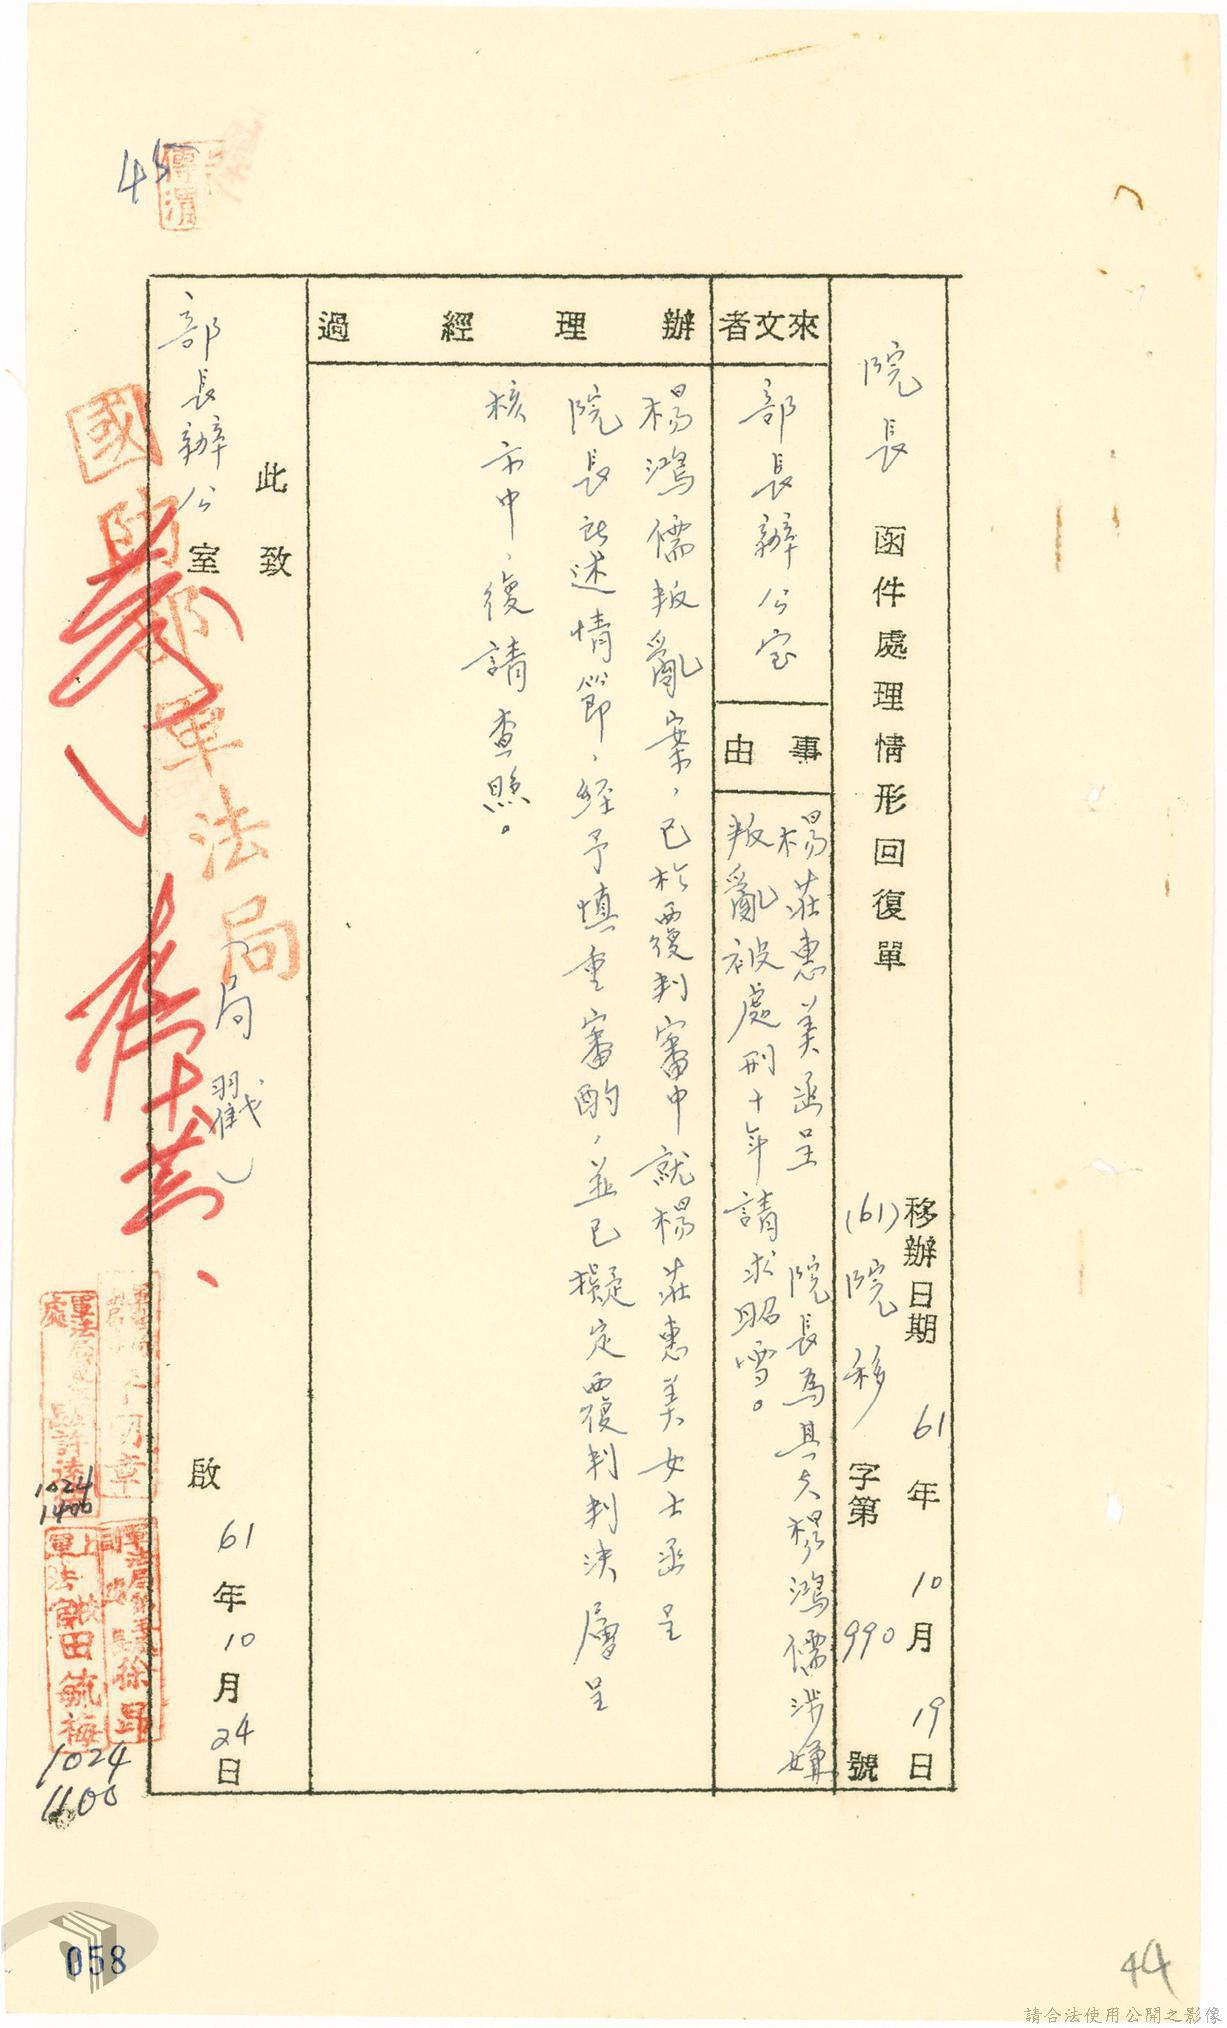 院長函件處理情形回復單
移辦日期 61年10月19日
(61)院移字第990號
來文者
部長辦公室
事由
楊莊惠美函呈 院長為其夫楊鴻儒涉嫌
叛亂被處刑十年請求昭雪。
辦理經過
楊鴻儒叛亂案，已於覆判審中就楊莊惠美女士函呈
院長所述情節，經予慎重審酌，並已擬定覆判判決層呈
核示中，復請查照。
此致
部長辦公室
國防部軍法局
局戳
啟
61年10月24日
軍法官田毓梅
徐昂
1024
1400
1024
1100
45
44
058
請合法使用公開之影像